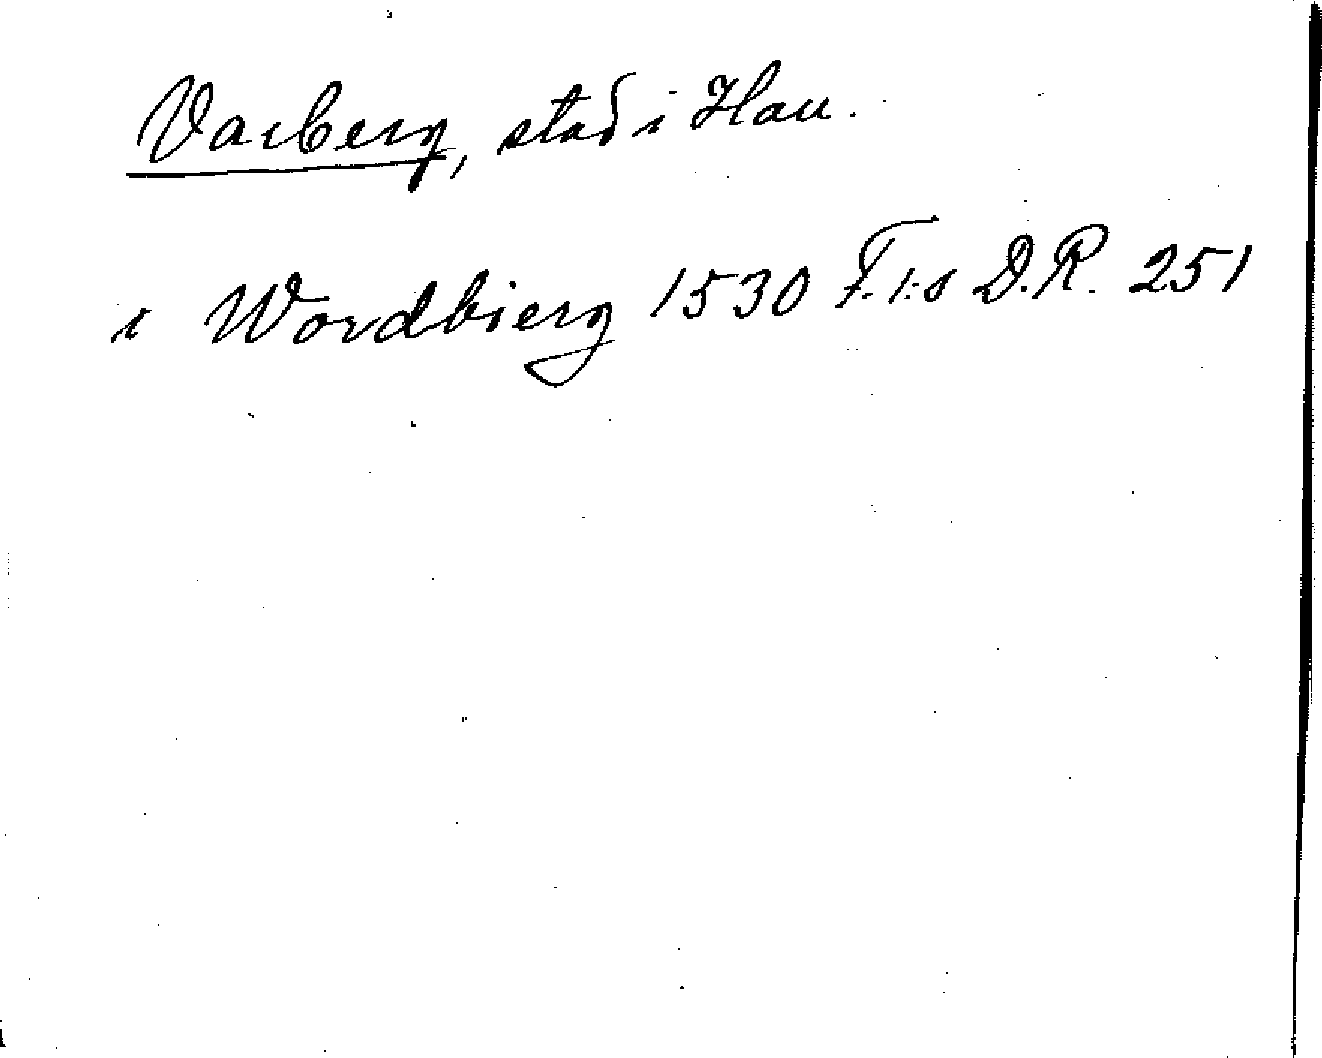 Varberg, stad i Hall.
i Wordbierg 1530 F.1:s D.R. 251